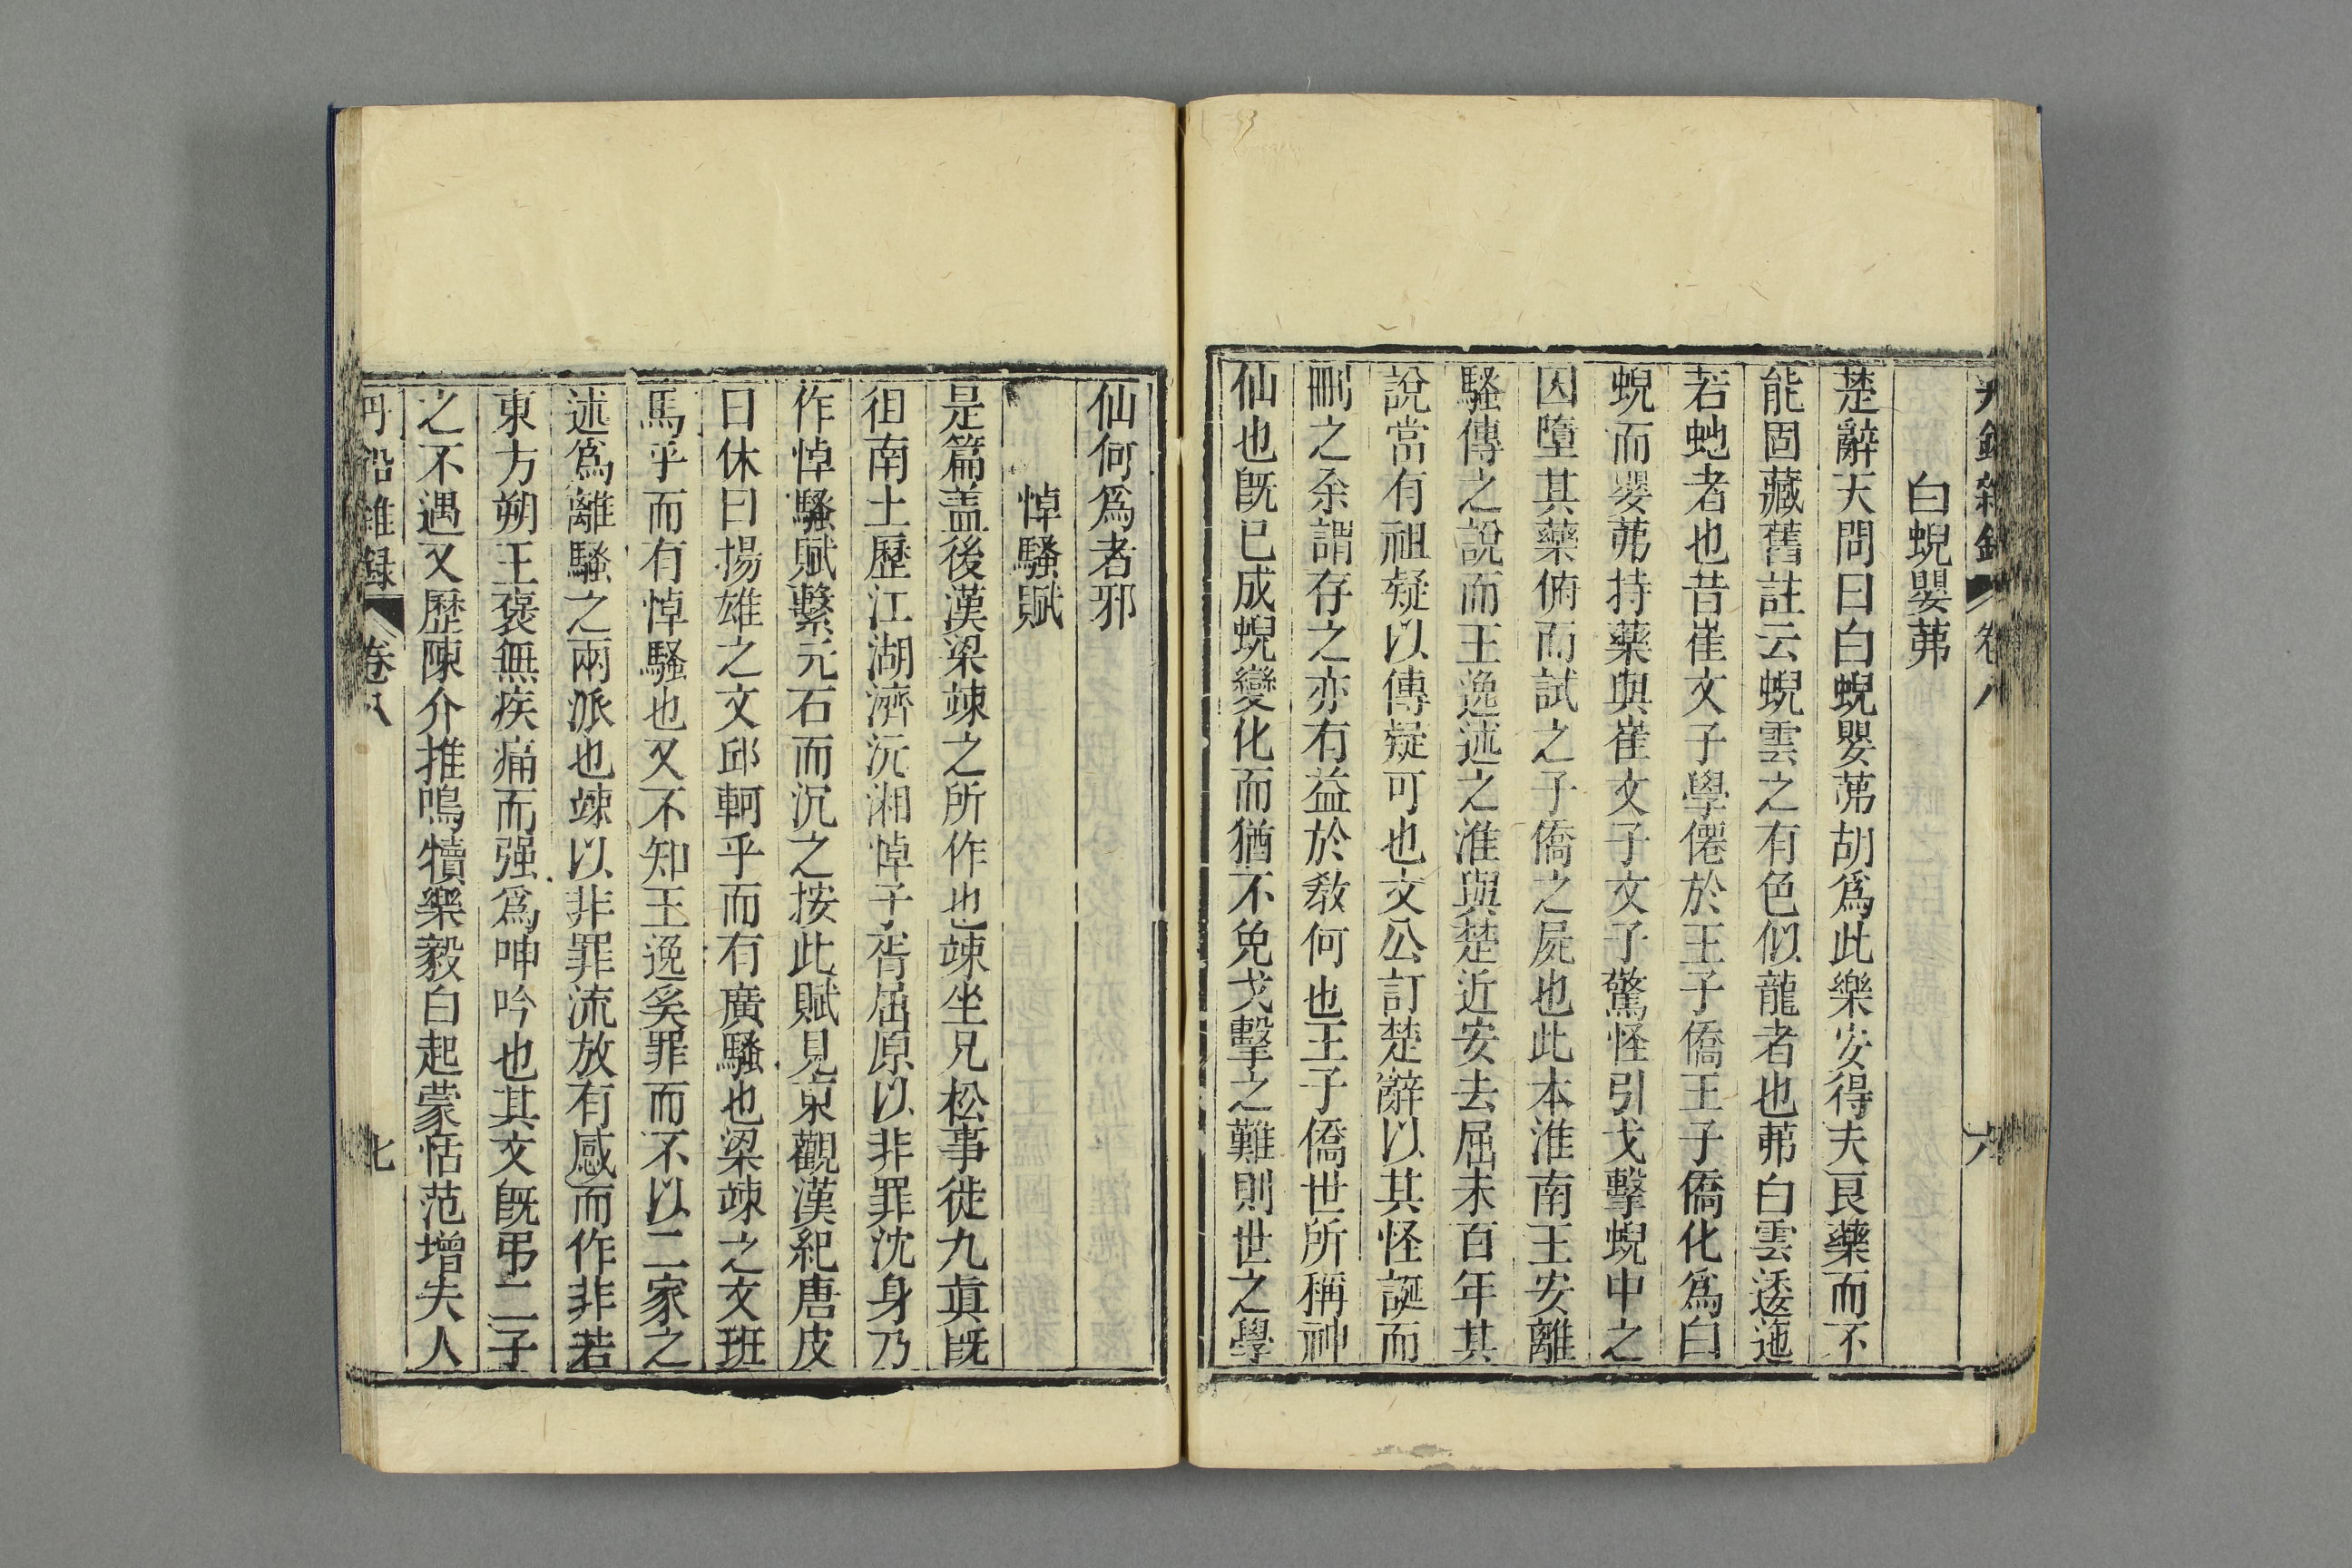 丹鉛雜錄 卷八 六
白蜺嬰茀
楚辭天問曰白蜺嬰茀胡爲此樂安得夫良藥而不
能固藏舊註云蜺雲之有色似龍者也茀白雲逶迤
若虵者也昔崔文子學僊於王子僑王子僑化爲白
蜺而嬰茀持藥與崔文子文子驚怪引戈擊蜺中之
因墮其藥俯而試之子僑之屍也此本淮南王安離
騷傳之說而王逸述之淮與楚近安去屈未百年其
說當有祖疑以傳疑可也文公訂楚辭以其怪誕而
刪之余謂存之亦有益於敎何也王子僑世所稱神
仙也旣已成蜺變化而猶不免戈擊之難則世之學
仙何爲者邪
悼騷賦
是篇盖後漢梁竦之所作也竦坐兄松事徙九眞旣
徂南土歷江湖濟沅湘悼子胥屈原以非罪沈身乃
作悼騷賦繫元石而沉之按此賦見東觀漢紀唐皮
日休曰揚雄之文邱軻乎而有廣騷也梁竦之文班
馬乎而有悼騷也又不知王逸奚罪而不以二家之
述爲離騷之兩派也竦以非罪流放有感而作非若
東方朔王褒無疾痛而强爲呻吟也其文旣弔二子
之不遇又歷陳介推鳴犢樂毅白起蒙恬范增夫人
丹鉛雜録 卷八 七